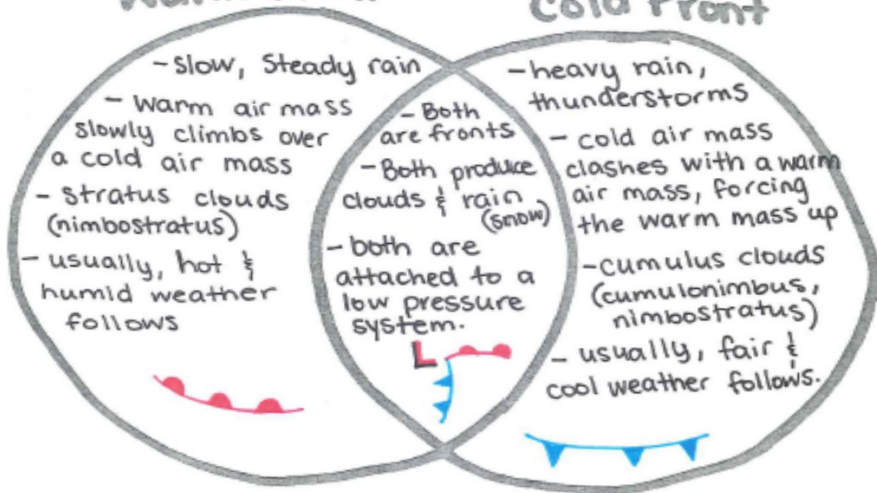 Cold Front
- Slow, Steady rain
- Warm air mass
slowly climbs over
a cold air mass
- Stratus clouds
(nimbostratus)
- usually, hot &
humid weather
follows
- Both
are fronts
- Both produce
clouds & rain
(snow)
- both are
attached to a
low pressure
system.
L
- heavy rain,
thunderstorms
- cold air mass
clashes with a warm
air mass, forcing
the warm mass up
- cumulus clouds
(cumulonimbus,
nimbostratus)
- usually, fair &
cool weather follows.